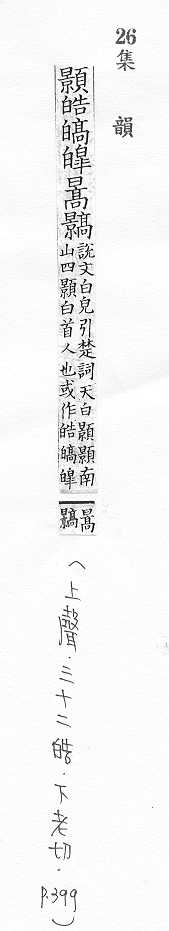 26 集韻
顥皓暠皞暠顥 說文白皃引楚詞天白顥顥南
山四顥白首人也或作皓暠皞
暠
顥
(上聲.三十二皓.下老切.
p.399)